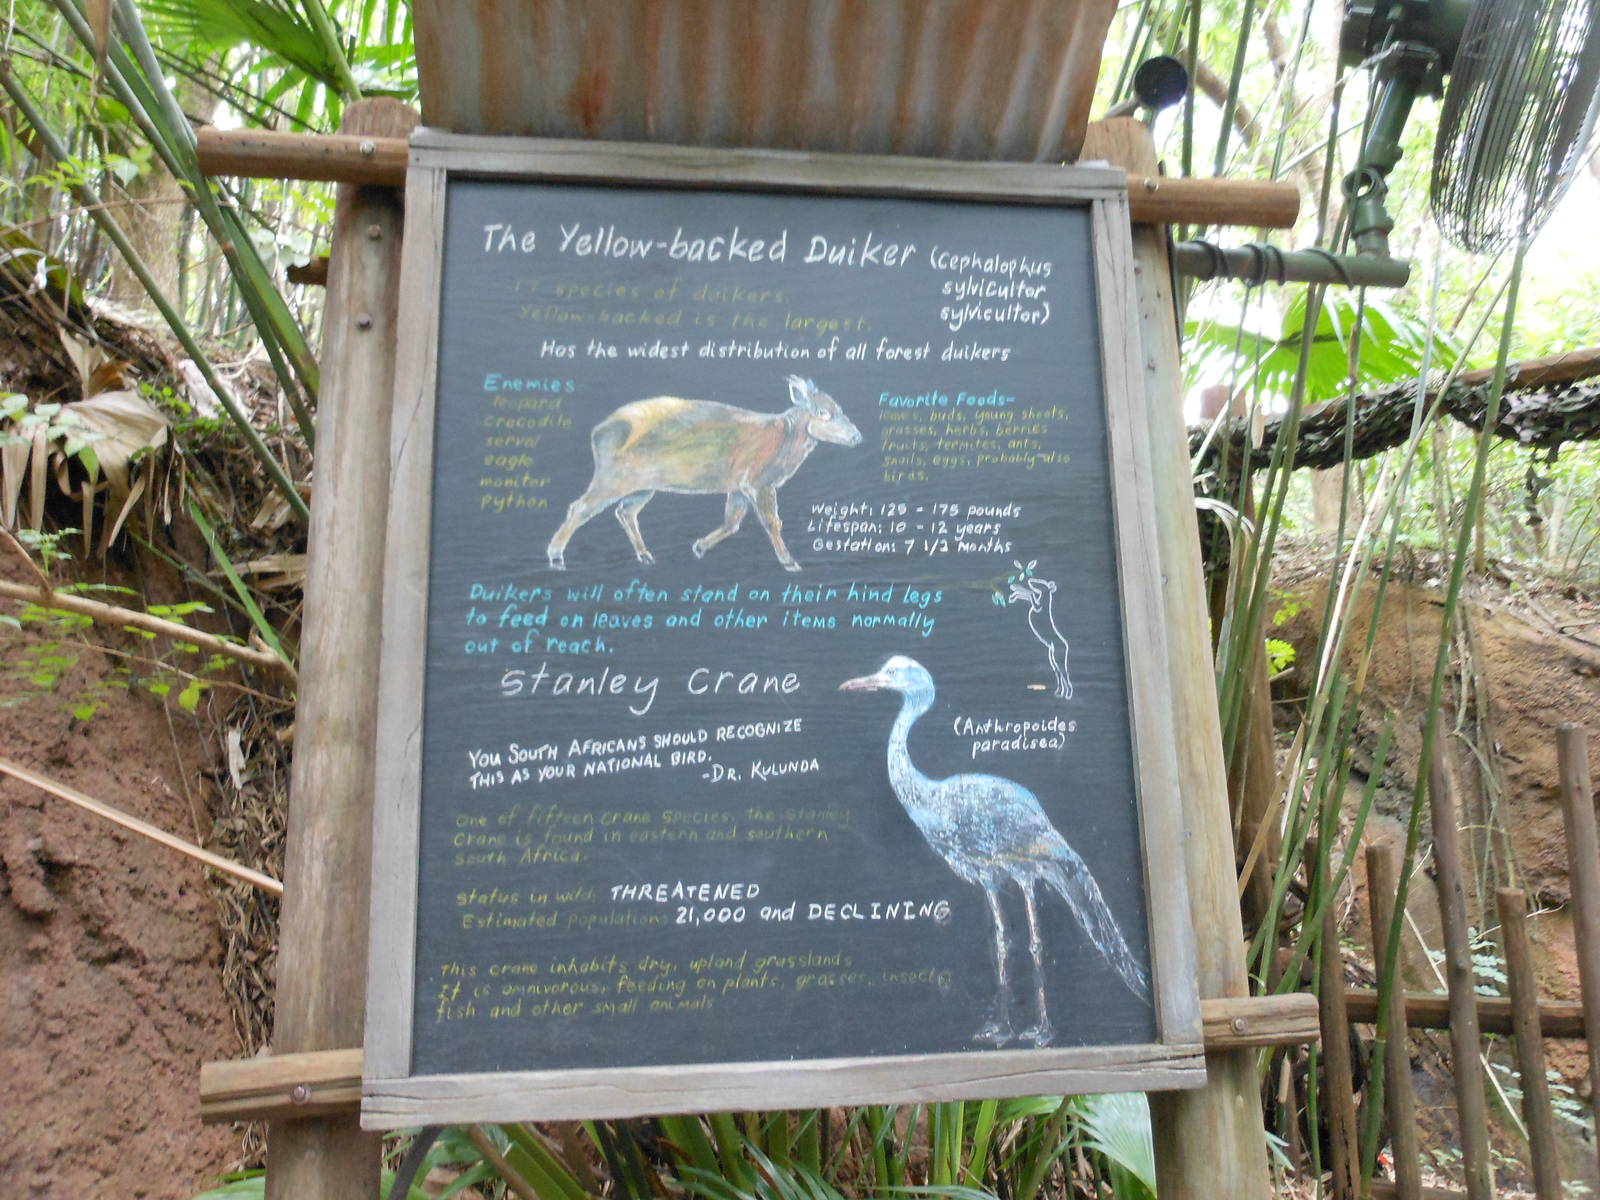 The Yellow-backed Duiker (Cephalophus
sylvicultor
sylvicultor)
17 species of duikers.
Yellow-backed is the largest.
Has the widest distribution of all forest duikers
Enemies
leopard
crocodile
serval
eagle
monitor
python
Favorite Foods-
leaves, buds, young shoots,
grasses, herbs, berries
fruits, termites, ants,
snails, eggs, probably also
birds.
Weight: 125 - 175 pounds
Lifespan: 10 - 12 years
Gestation: 7 1/2 months
Duikers will often stand on their hind legs
to feed on leaves and other items normally
out of reach.
Stanley Crane
(Anthropoides
paradisea)
YOU SOUTH AFRICANS SHOULD RECOGNIZE
THIS AS YOUR NATIONAL BIRD.
-DR. KULUNDA
One of fifteen crane species, the Stanley
Crane is found in eastern and southern
South Africa.
Status in wild: THREATENED
Estimated population: 21,000 and DECLINING
This crane inhabits dry, upland grasslands
It is omnivorous, feeding on plants, grasses, insects,
fish and other small animals